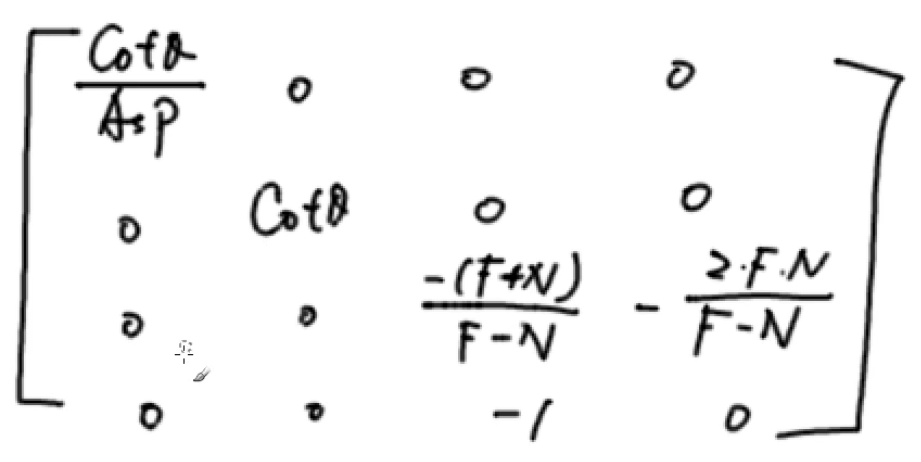 Cotθ/Asp 0 0 0
0 Cotθ 0 0
0 0 -(F+N)/F-N -2·F·N/F-N
0 0 -1 0